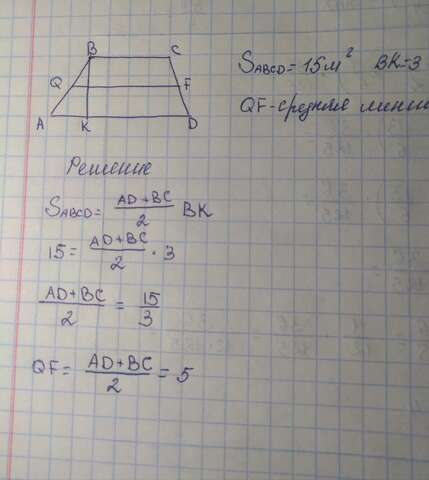 B C
S_ABCD = 15м² BK=3
Q F
QF-средняя лини
A K D
Решение
S_ABCD = \frac{AD+BC}{2} BK
15 = \frac{AD+BC}{2} · 3
\frac{AD+BC}{2} = \frac{15}{3}
QF = \frac{AD+BC}{2} = 5